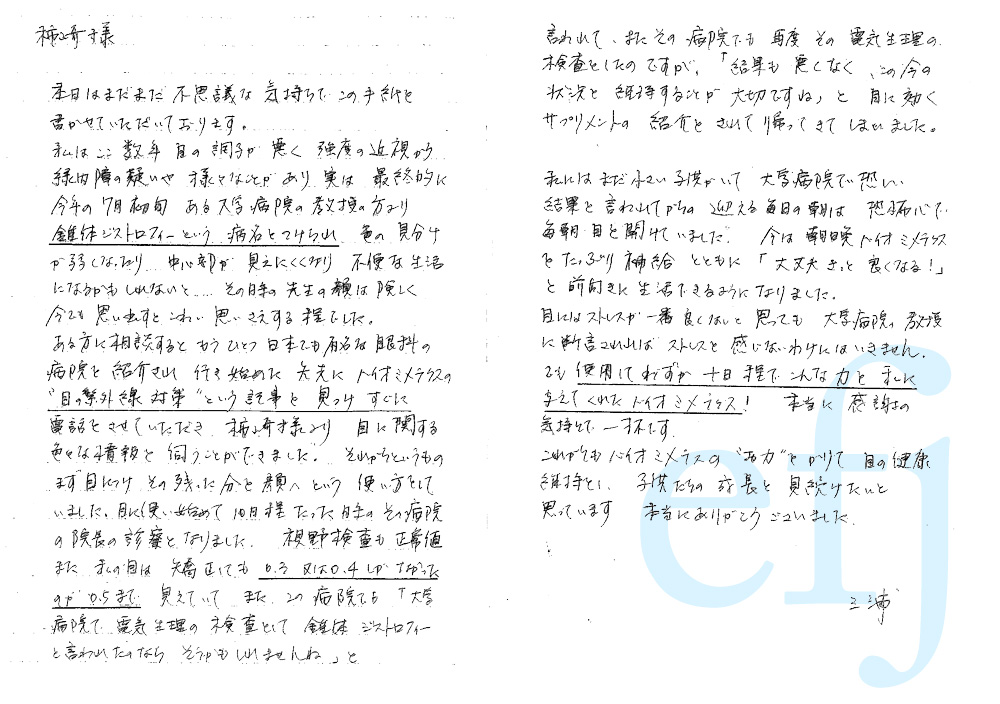 柿崎様
本日はまだまだ 不思議な 気持ちで この手紙を
書かせていただいております。
私はここ数年 目の調子が 悪く 強度の近視から
緑内障の疑いや 様々なことがあり 実は 最終的に
今年の7月初旬 ある大学病院の教授の方より
錐体ジストロフィーという 病名をつけられ 色の見分け
が弱くなったり 中心部が 見えにくくなり 不便な生活
になるかもしれないと.... その時の先生の顔は険しく
今でも思い出すとこわい思いさえする程でした。
ある方に相談すると もうひとつ 日本でも有名な眼科の
病院を紹介され 行き始めた 矢先に バイオミメティクスの
"目の紫外線対策"という記事を 見つけ すぐに
電話をさせていただき 柿崎様より 目に関する
色々な情報を 伺うことができました。 それからというもの
まず目につけ その残った分を顔へ という 使い方をして
いました。目に使い始めて 10日程 たった時の その病院
の院長の診察となりました。 視野検査も正常値
また 私の目は 矯正しても 0.3 又は0.4しかなかった
のが 0.5まで 見えていて また、この病院でも 「大学
病院で 電気生理の検査をして 錐体ジストロフィー
と言われたのなら そうかもしれませんね」と
言われて、またその 病院でも 再度 その 電気生理の
検査をしたのですが、「結果も 悪くなく、この今の
状況を 維持することが 大切ですね」と 目に効く
サプリメントの 紹介を されて帰ってきてしまいました。
私にはまだ小さい子供がいて 大学病院で恐い
結果を言われてからの 迎える毎日の朝は 恐怖心で
毎朝 目を開けていました。 今は 朝晩 バイオミメティクス
をたっぷり補給 とともに 「大丈夫 きっと 良くなる!」
と 前向きに 生活できるようになりました。
目にはストレスが一番良くないと 思っても 大学病院の教授
に断言されれば ストレスを 感じないわけにはいきません。
でも 使用してわずか 十日程で こんな力を 私に
与えてくれた バイオミメティクス! 本当に 感謝の
気持ちで 一杯です。
これからもバイオミメティクスの "西力"をかりて 目の健康
維持をし、子供たちの 成長を 見続けたいと
思っています 本当にありがとうございました
三浦
efj